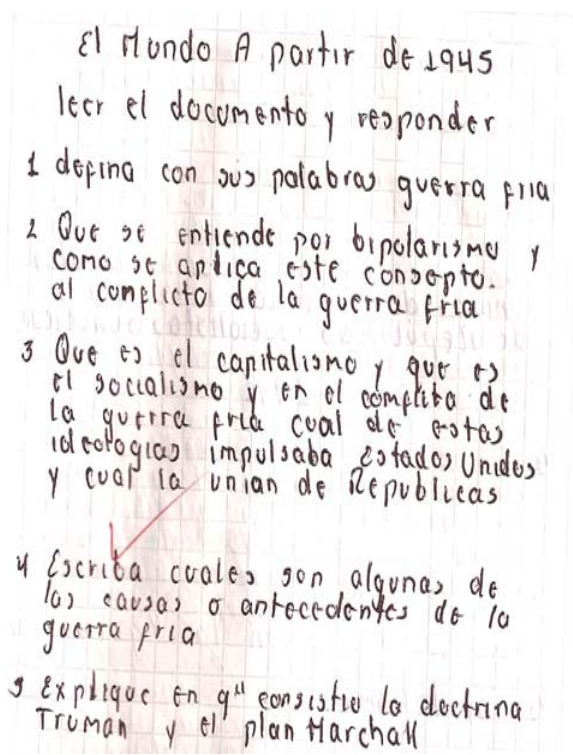 El Mundo A partir de 1945
leer el documento y responder
1 defina con sus palabras guerra fria
2 Que se entiende por bipolarismo y
como se aplica este consepto.
al conflicto de la guerra fria
3 Que es el capitalismo y que es
el socialismo y en el conflito de
la guerra fria cual de estas
ideologias impulsaba Estados Unidos
y cual la union de Republicas
4 Escriba cuales son algunas de
las causas o antecedentes de la
guerra fria
5 Explique en q" consistio la doctrina
Truman y el plan Marchall